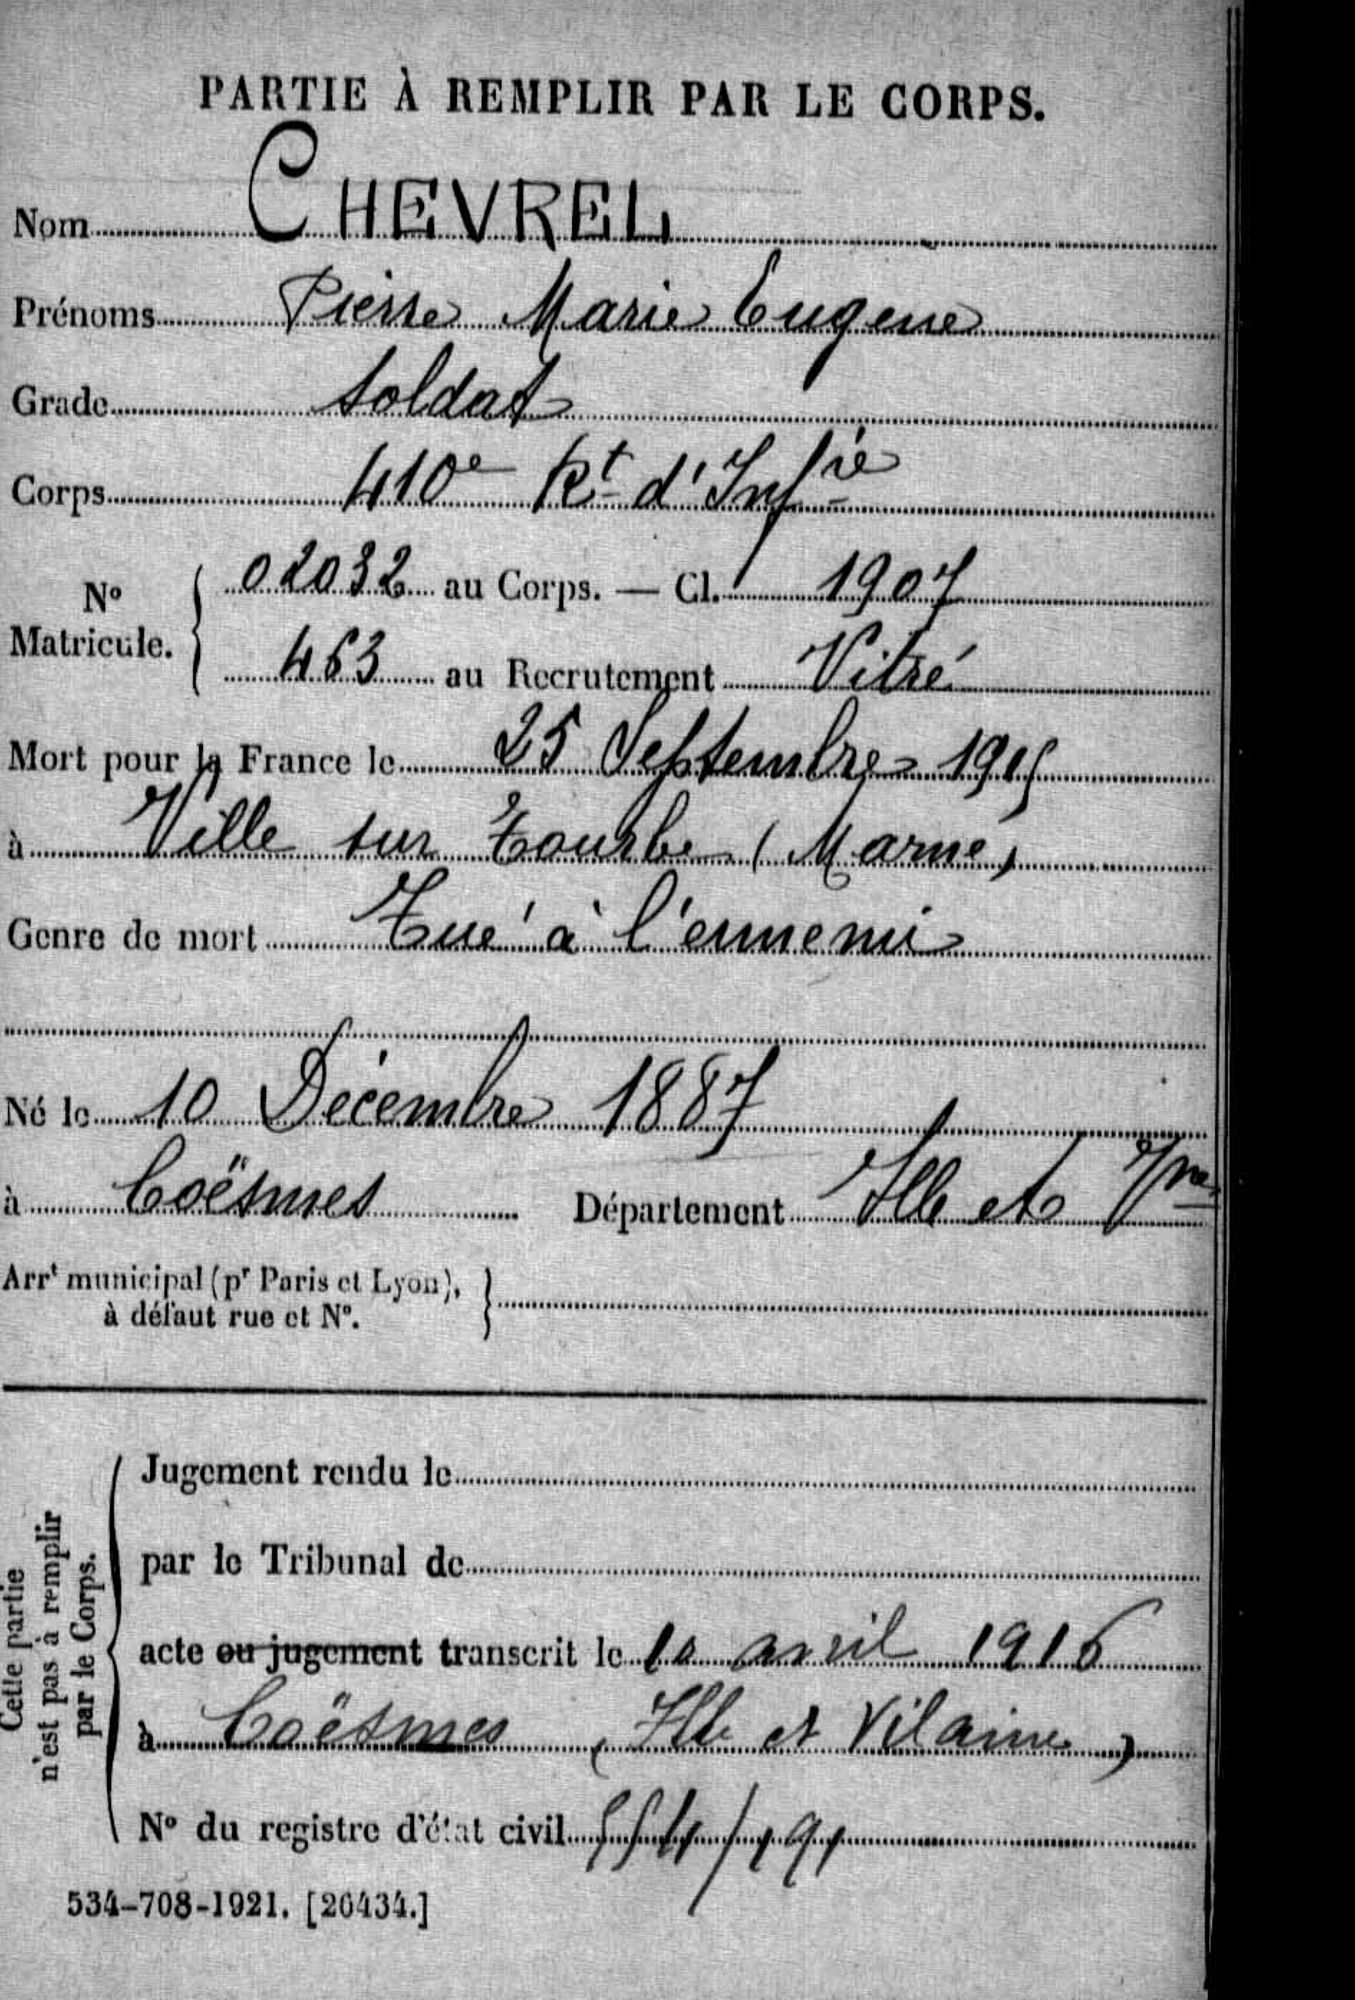 PARTIE À REMPLIR PAR LE CORPS.
Nom CHEVREL
Prénoms Pierre Marie Eugene
Grade Soldat
Corps 410e Rt d'Infie
No Matricule. { 02032 au Corps. — Cl. 1907
463 au Recrutement Vitré
Mort pour la France le 25 Septembre 1915
à Ville sur Tourbe (Marne)
Genre de mort Tué à l'ennemi
Né le 10 Décembre 1887
à Coësmes Département Ille et Vne
Arrt municipal (pr Paris et Lyon), à défaut rue et No. }
Cette partie n'est pas à remplir par le Corps.
Jugement rendu le
par le Tribunal de
acte ou jugement transcrit le 10 avril 1916
à Coësmes (Ille et Vilaine)
No du registre d'état civil 554/191
534-708-1921. [26434.]